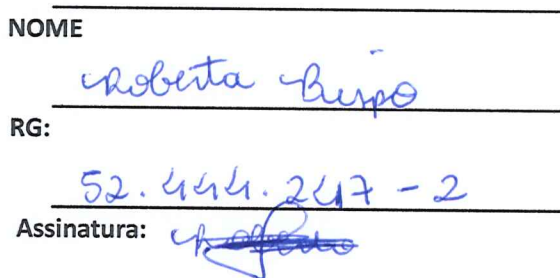 NOME
Roberta Bispo
RG:
52.444.247-2
Assinatura: